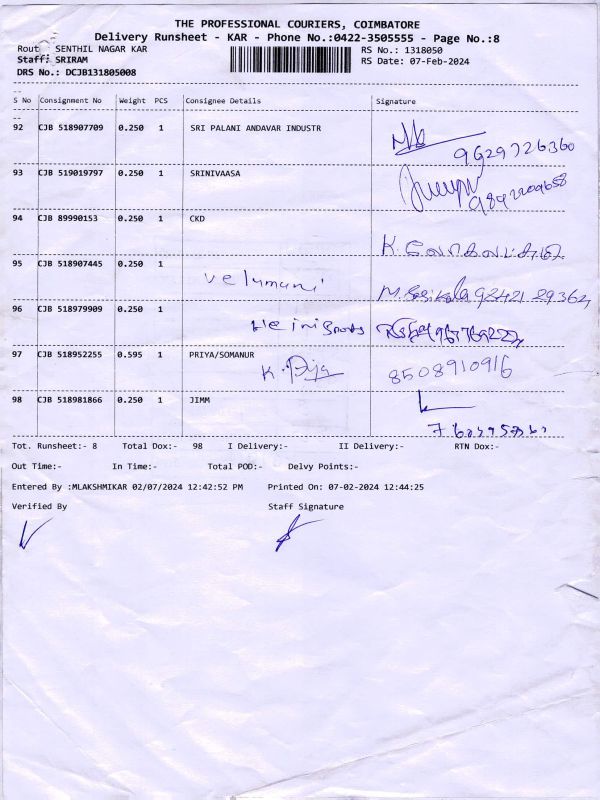 THE PROFESSIONAL COURIERS, COIMBATORE
Delivery Runsheet - KAR - Phone No.:0422-3505555 - Page No.:8
Route: SENTHIL NAGAR KAR RS No.: 1318050
Staff: SRIRAM RS Date: 07-Feb-2024
DRS No.: DCJB131805008
S No Consignment No Weight PCS Consignee Details Signature
92 CJB 518907709 0.250 1 SRI PALANI ANDAVAR INDUSTR
9629726360
93 CJB 519019797 0.250 1 SRINIVAASA
94 CJB 89990153 0.250 1 CKD
95 CJB 518907445 0.250 1
velumuni
M. Sasikala 92421 29362
96 CJB 518979909 0.250 1
97 CJB 518952255 0.595 1 PRIYA/SOMANUR
K. Priya 8508910916
98 CJB 518981866 0.250 1 JIMM
Tot. Runsheet:- 8 Total Dox:- 98 I Delivery:- II Delivery:- RTN Dox:-
Out Time:- In Time:- Total POD:- Delvy Points:-
Entered By :MLAKSHMIKAR 02/07/2024 12:42:52 PM Printed On: 07-02-2024 12:44:25
Verified By Staff Signature